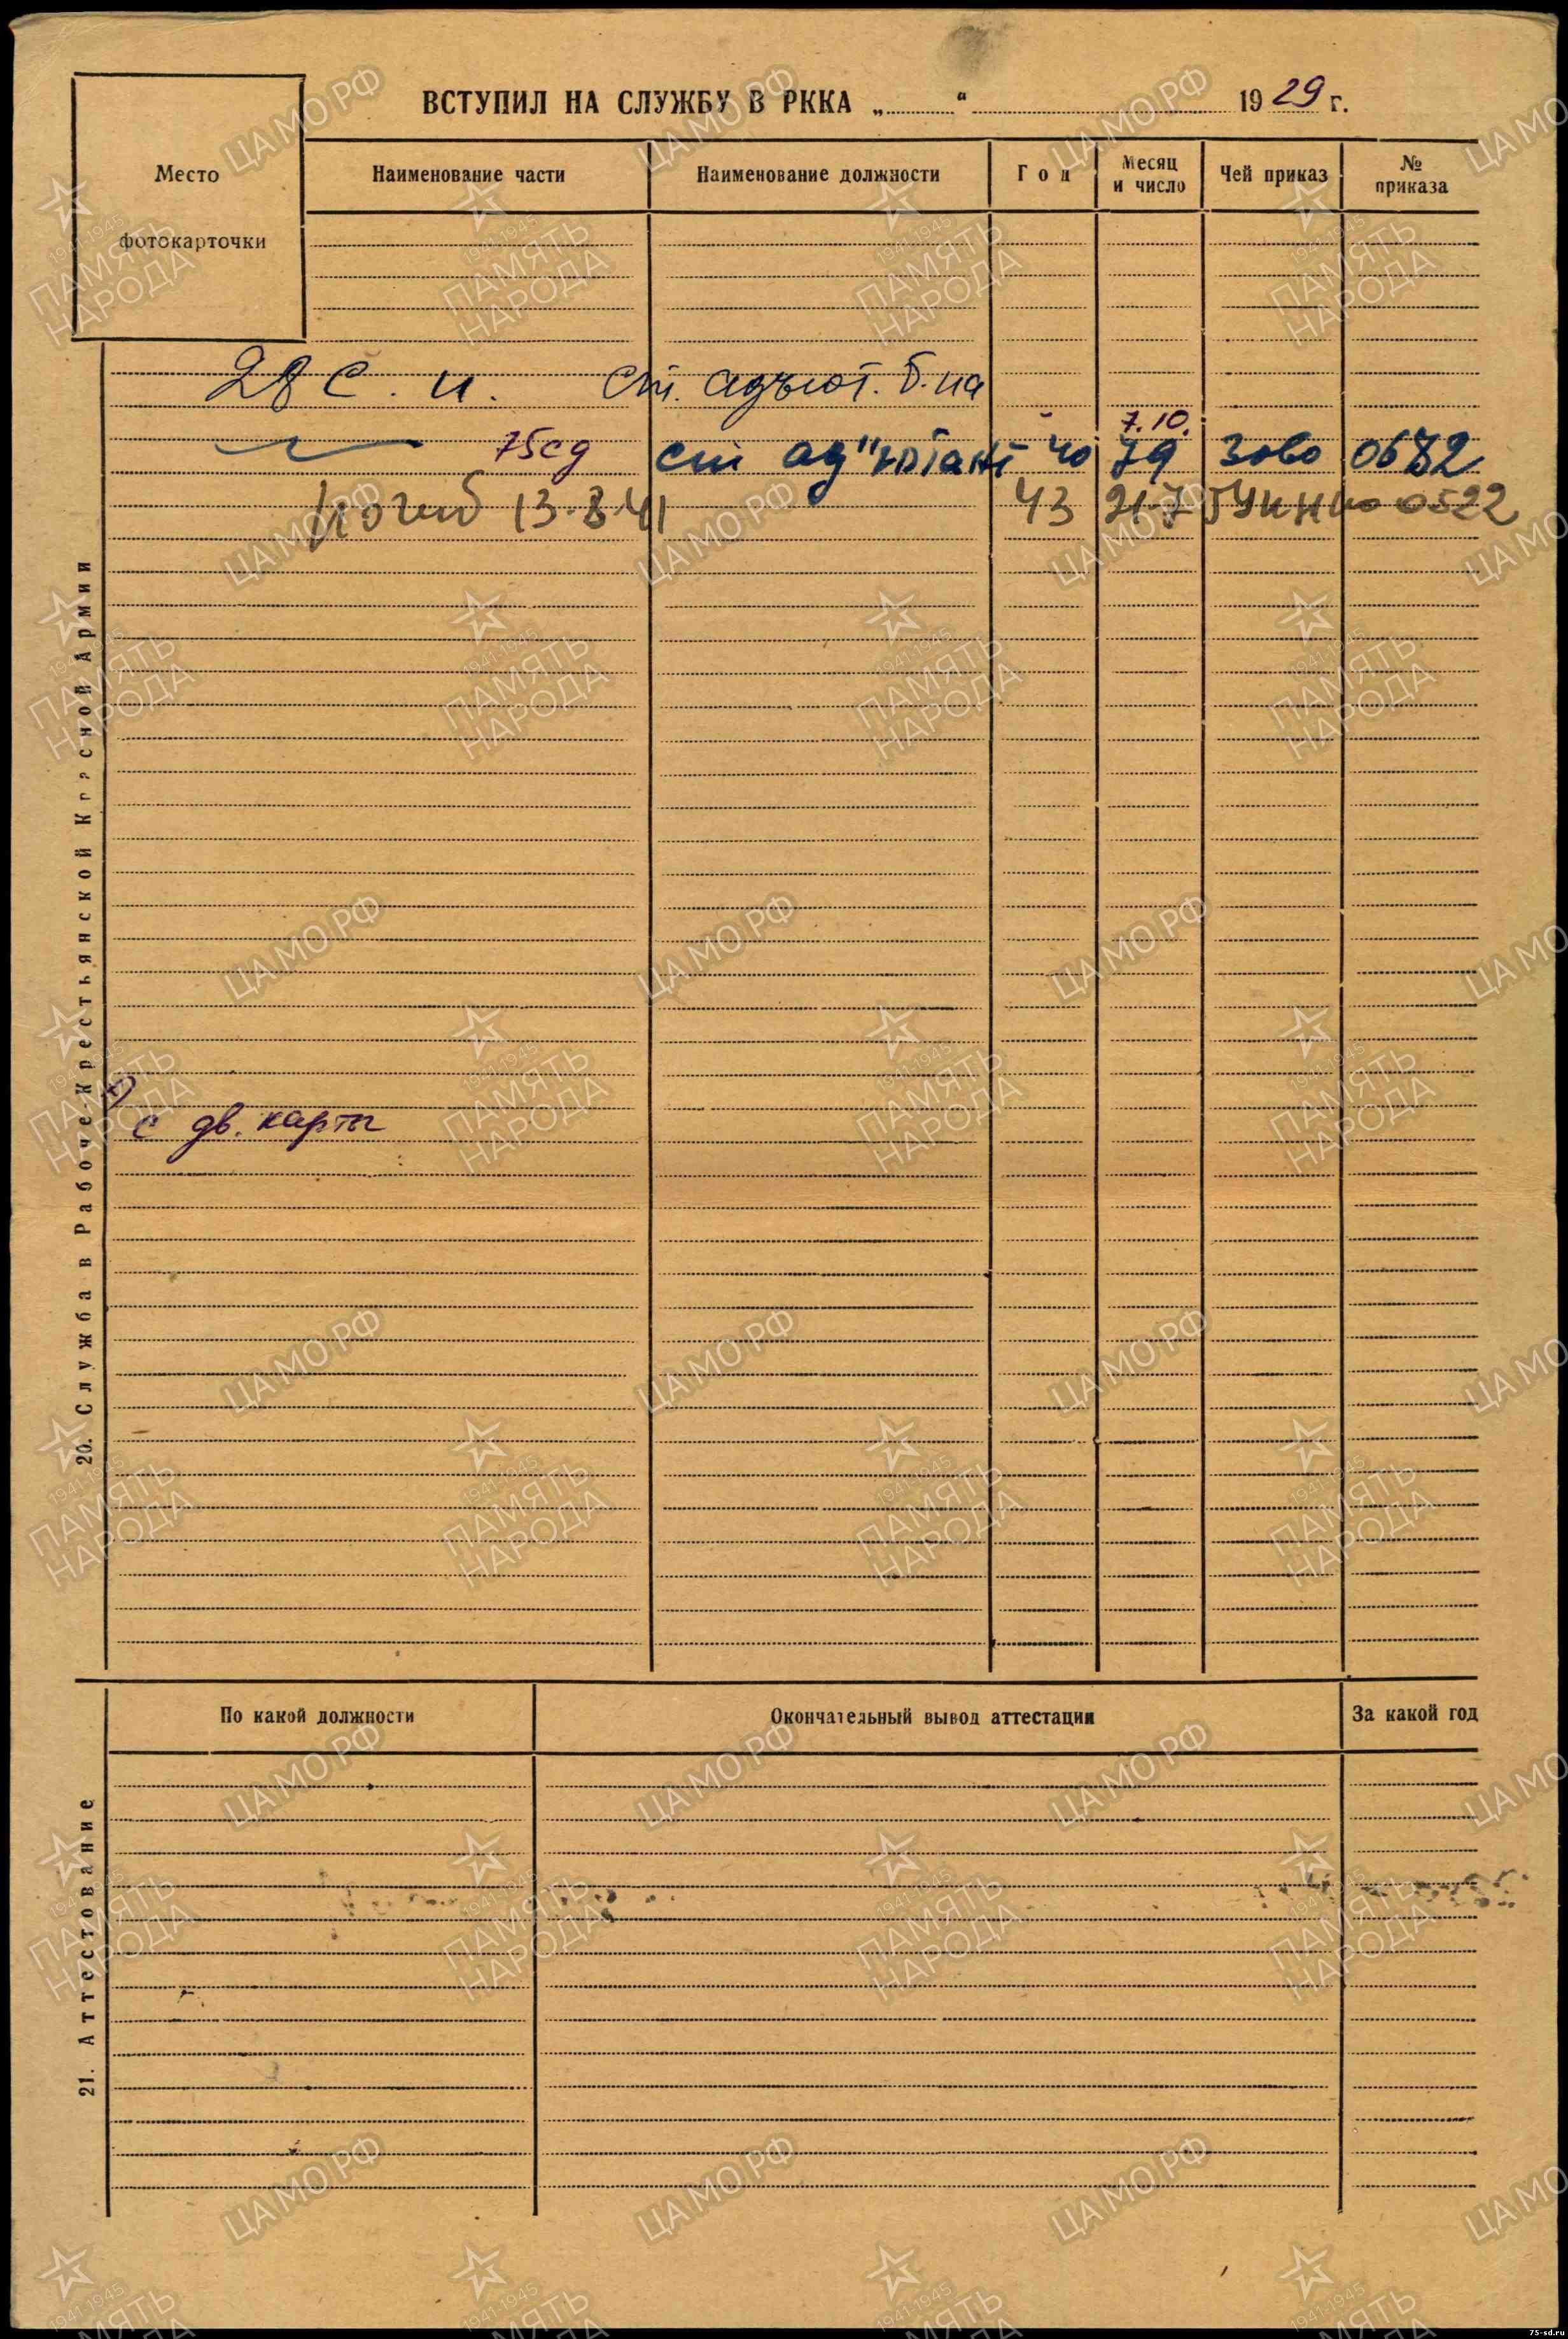 ВСТУПИЛ НА СЛУЖБУ В РККА „ “ 1929 г.
Место
фотокарточки
Наименование части
Наименование должности
Год
Месяц
и число
Чей приказ
№
приказа
28 с. п. ст. адъют. б-на
7.10.
75сд ст ад"ютант 40 Зово 0682
погиб 13.8.41 43 21.7 ГУК НКО 0522
с дв. карты
20. Служба в Рабоче-Крестьянской Красной Армии
По какой должности
Окончательный вывод аттестации
За какой год
21. Аттестование
ЦАМО.РФ
1941-1945
ПАМЯТЬ
НАРОДА
75-sd.ru